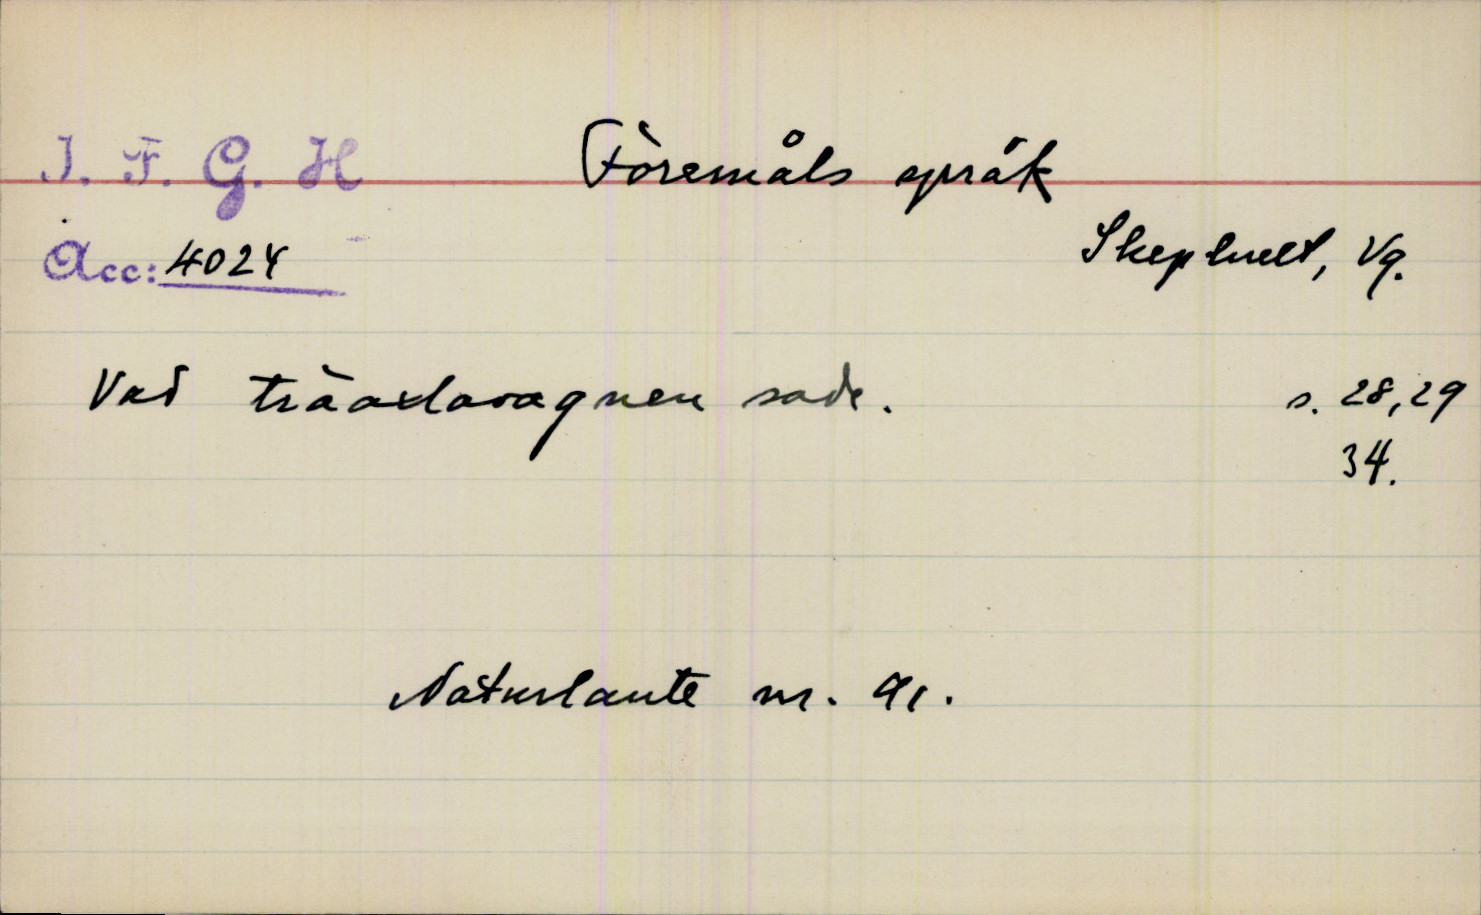 I. F. G. H
Föremåls språk
Acc: 4024
Skephult, Vg.
Vad träaxlavagnen sade.
s. 28, 29
34.
Naturlaute nr. 91.